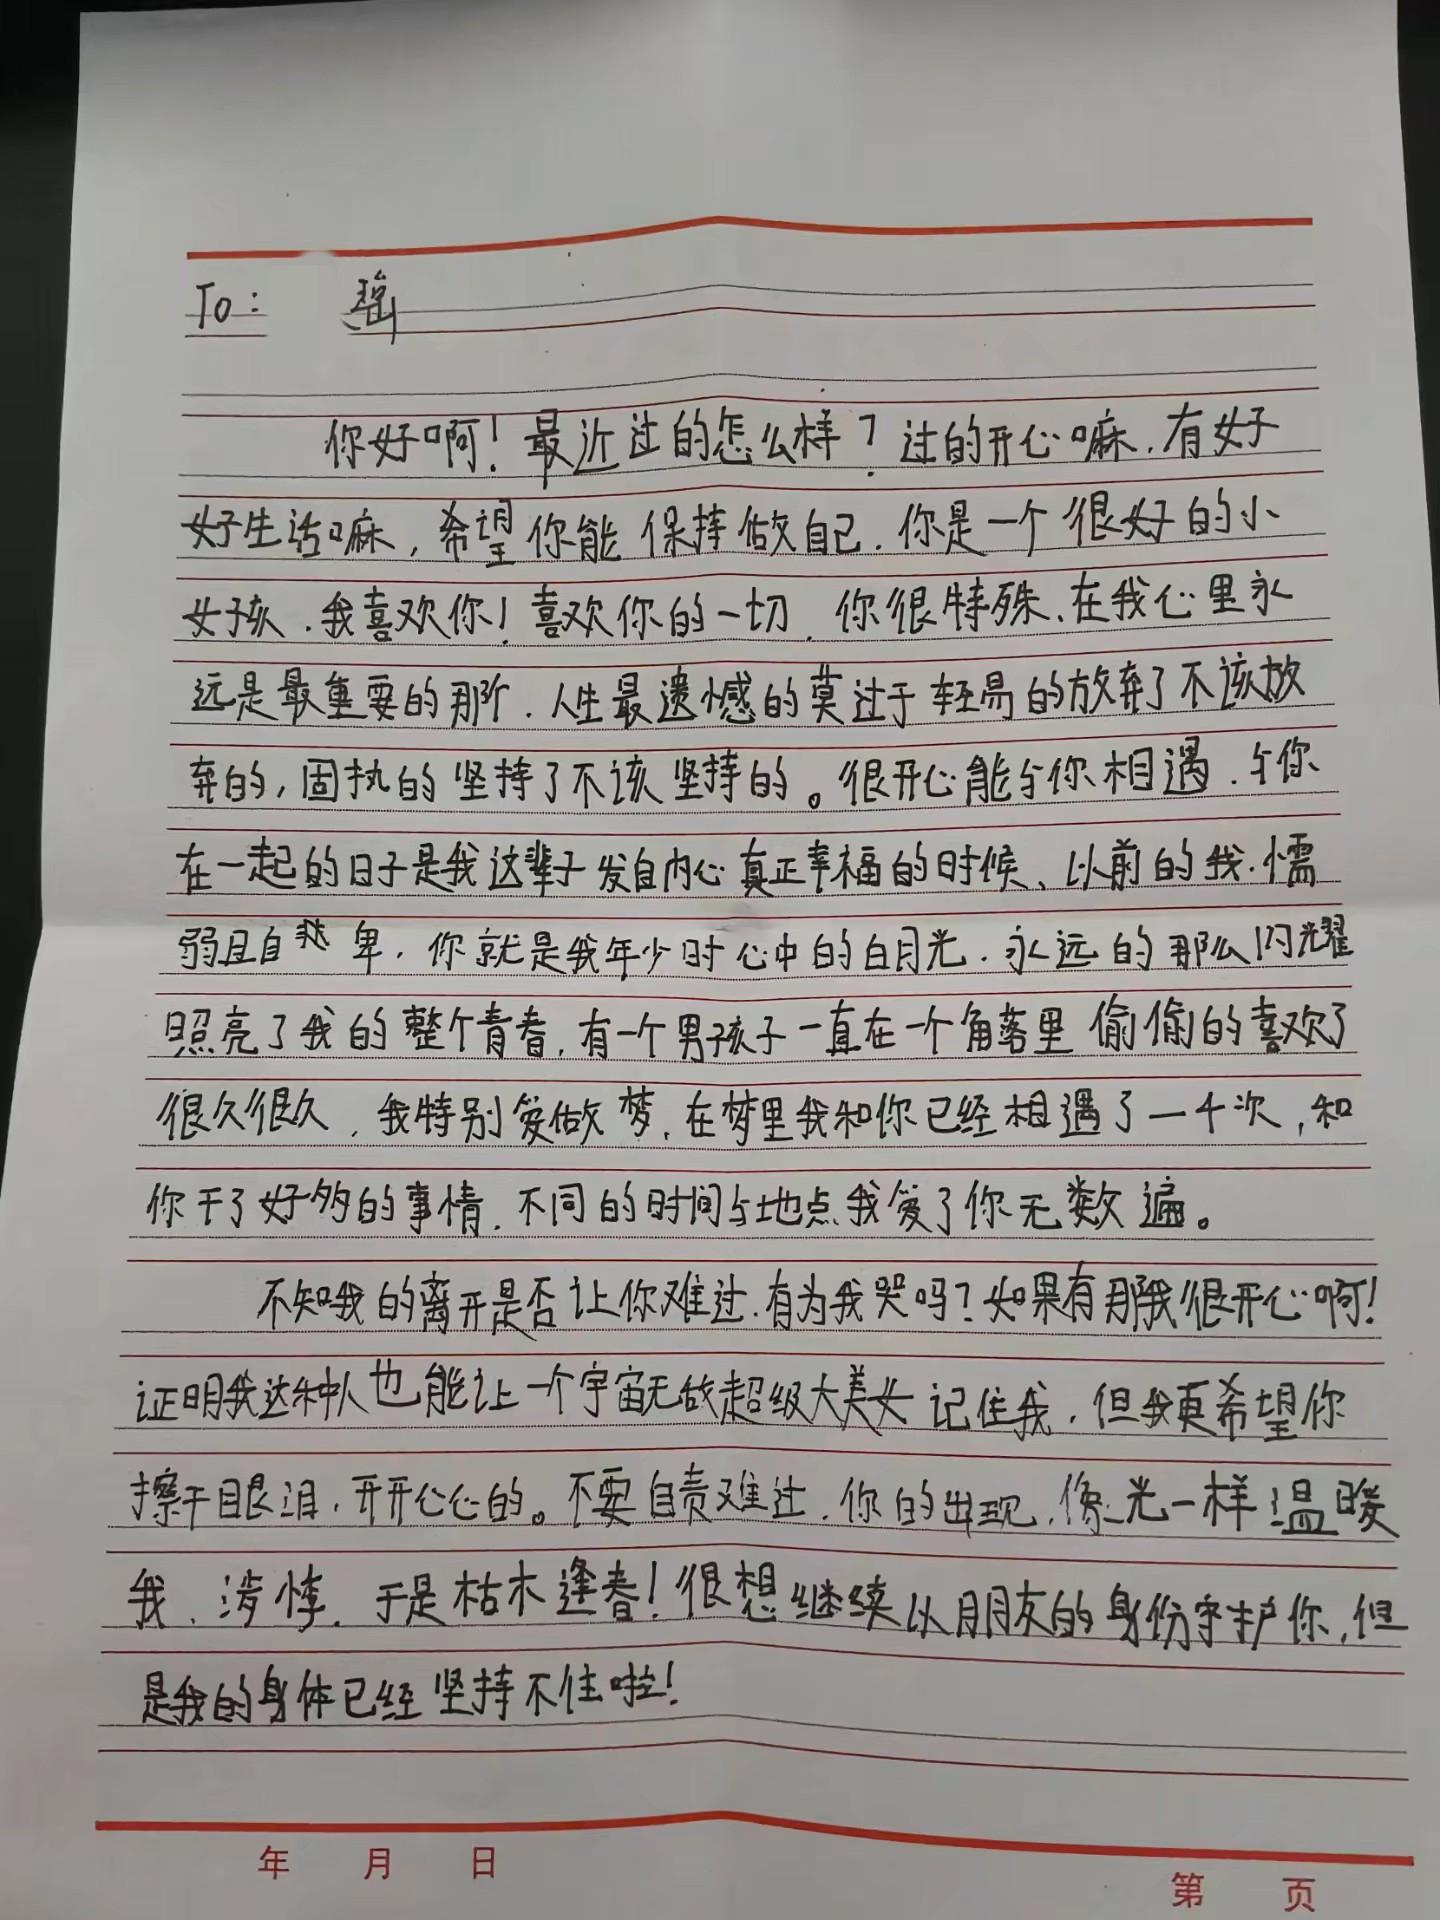 To: 瑶
你好啊！最近过的怎么样？过的开心嘛，有好
好生活嘛，希望你能保持做自己，你是一个很好的小
女孩，我喜欢你！喜欢你的一切，你很特殊、在我心里永
远是最重要的那个，人生最遗憾的莫过于轻易的放弃了不该放
弃的，固执的坚持了不该坚持的。很开心能与你相遇，与你
在一起的日子是我这辈子发自内心真正幸福的时候、以前的我，懦
弱且自卑，你就是我年少时心中的白月光，永远的那么闪耀
照亮了我的整个青春，有一个男孩子一直在一个角落里偷偷的喜欢了
很久很久，我特别爱做梦，在梦里我和你已经相遇了一千次，和
你干了好多的事情，不同的时间与地点我爱了你无数遍。
不知我的离开是否让你难过，有为我哭吗？如果有那我很开心啊！
证明我这种人也能让一个宇宙无敌超级大美女记住我，但我更希望你
擦干眼泪，开开心心的。不要自责难过，你的出现，像光一样温暖
我、于是枯木逢春！很想继续以朋友的身份守护你，但
是我的身体已经坚持不住啦！
年 月 日
第 页